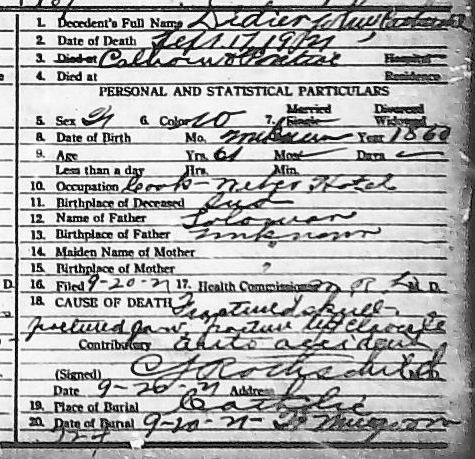 1. Decedent's Full Name Didier
2. Date of Death Sept. 17, 1921
3. Died at Calhoun Hospital
4. Died at Residence
PERSONAL AND STATISTICAL PARTICULARS
5. Sex 6. Color W 7. Married Single Divorced Widowed
8. Date of Birth Mo. unknown Year 1860
9. Age Yrs. 61 Mos. Days
Less than a day Hrs. Min.
10. Occupation Cook - Hotel
11. Birthplace of Deceased Ind
12. Name of Father Soloman
13. Birthplace of Father unknown
14. Maiden Name of Mother "
15. Birthplace of Mother "
16. Filed 9-20-21 17. Health Commissioner M. D.
18. CAUSE OF DEATH Fractured skull-
fractured jaw, fracture left clavicle
Contributory Auto accident
(Signed) C J Rothschild
Date 9-20-21 Address
19. Place of Burial Catholic
20. Date of Burial 9-20-21-